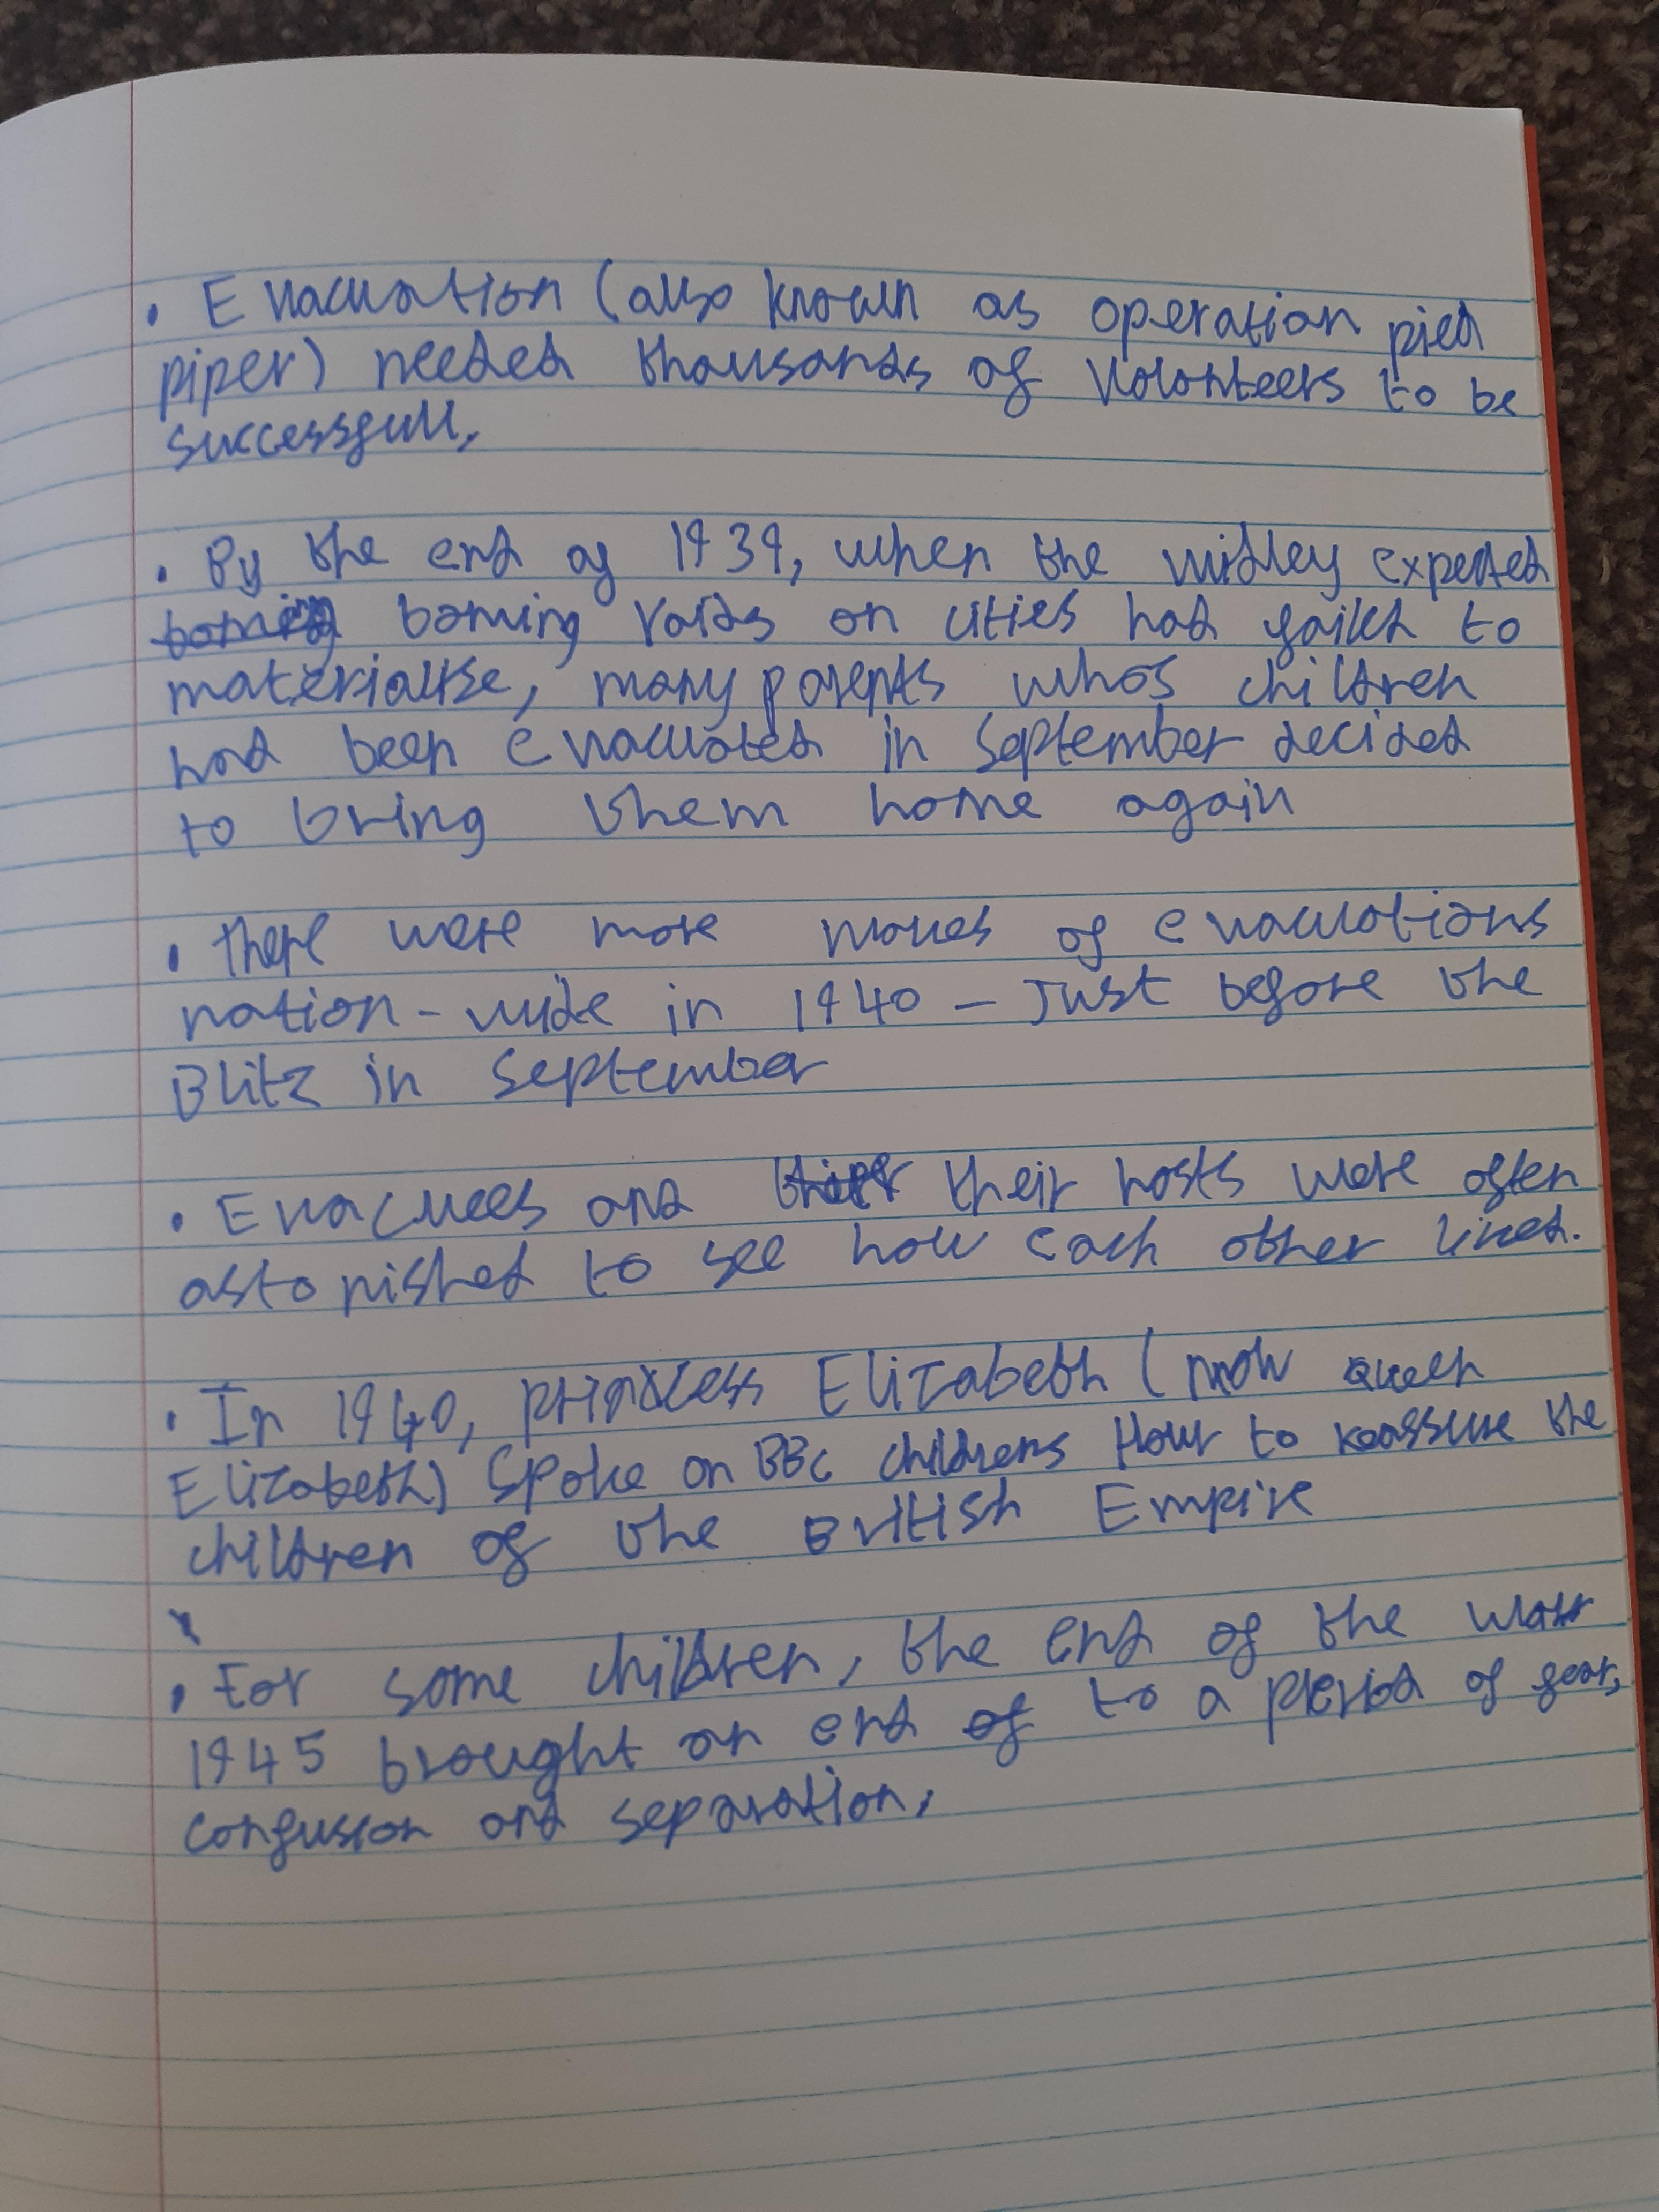 • Evacuation (also known as operation pied
piper) needed thousands of volonteers to be
successfull.
• By the end of 1939, when the widley expected
boming raids on cities had failed to
materialise, many parents whos children
had been evacuated in september decided
to bring them home again
• there were more waves of evacuations
nation-wide in 1940 - Just before the
Blitz in September
• Evacuees and their hosts were often
astonished to see how each other lived.
• In 1940, princess Elizabeth (now queen
Elizabeth) spoke on BBC childrens Hour to reassure the
children of the British Empire
• For some children, the end of the war
1945 brought an end to a period of fear,
confusion and separation.